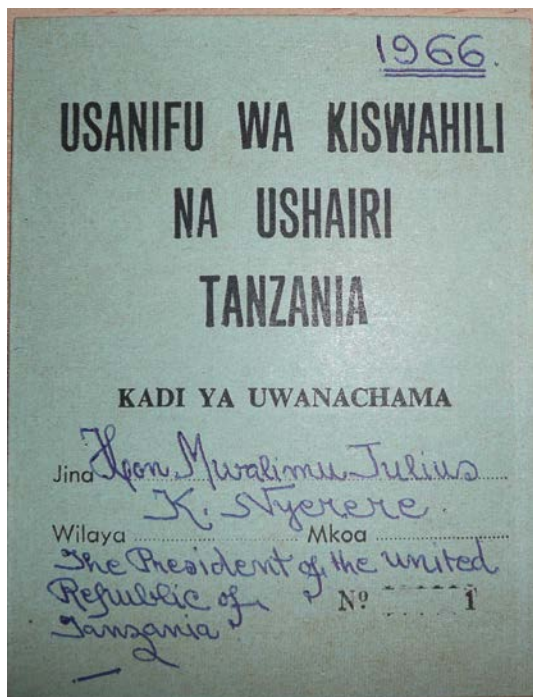 1966.
USANIFU WA KISWAHILI
NA USHAIRI
TANZANIA
KADI YA UWANACHAMA
Jina Hon Mwalimu Julius
K. Nyerere.
Wilaya ........................ Mkoa ........................
The President of the United
Republic of Nº 1
Tanzania